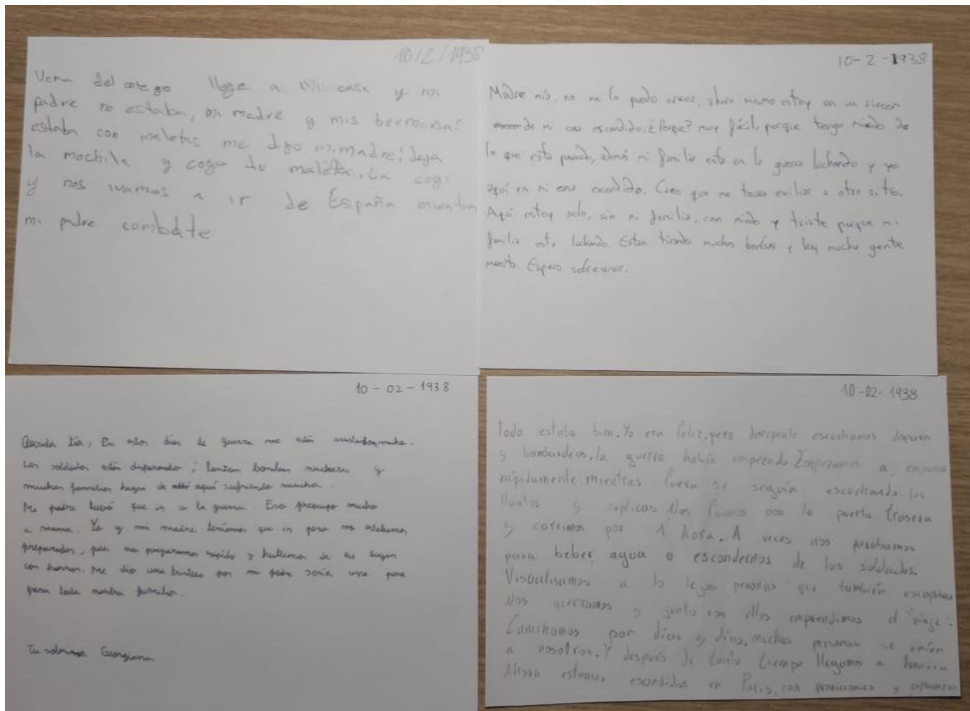 10/2/1938
Venia del colegio llege a mi casa y mi
padre no estaba, mi madre y mis hermanas
estaba con maletas me dijo mi madre: deja
la mochila y coge tu maleta. La cogi
y nos ivamos a ir de España mientras
mi padre combate
10-2-1938
Madre mía, no me lo puedo creer, ahora mismo estoy en un rincon
de mi casa escondido. ¿Porque? muy fácil, porque tengo miedo de
lo que esta pasando, además mi familia está en la guerra luchando y yo
aquí en mi casa escondido. Creo que me tocara exiliar a otro sitio.
Aquí estoy solo, sin mi familia, con miedo y triste porque mi
familia esta luchando. Estan tirando muchas bombas y hay mucha gente
muerta. Espero sobrevivir.
10-02-1938
Querida tía, En estos días de guerra me están mucho.
Los soldados están disparando; lanzan bombas nucleares y
muchas familias huyen de aquí sufriendo mucho.
Mi padre tuvó que ir a la guerra. Eso preocupo mucho
a mama. Yo y mi madre teníamos que ir pero no estabamos
preparados, pues nos preparamos rapido y huimos de ese lugar
con horror. Me dio una tristeza por mi padre sería una pena
para toda nuestra familia.
Tu sobrina Georgiana
10-02-1938
Todo estaba bien. Yo era feliz, pero derepente escuchamos disparos
y bombardeos. La guerra había empezado. Empezamos a empacar
rápidamente mientras fuera se seguía escuchando los
llantos y suplicas. Nos fuimos por la puerta trasera
y corrimos por 1 hora. A veces nos parabamos
para beber agua o escondernos de los soldados.
Visualisamos a lo lejos personas que también escapaban
Nos acercamos y junto con ellos emprendimos el "viaje".
Caminamos por días y días, muchas personas se unían
a nosotros. Y después de tanto tiempo llegamos a
Ahora estamos escondidos en París, con y